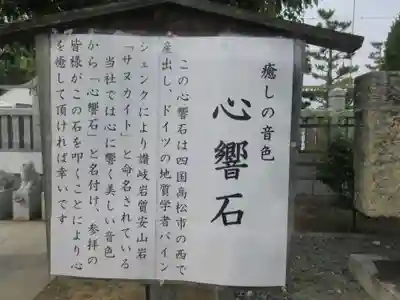 癒しの音色
心響石
この心響石は四国高松市の西で
産出し、ドイツの地質学者バイン
シェンクにより讃岐岩質安山岩
「サヌカイト」と命名されている
当社では心に響く美しい音色
から「心響石」と名付け、参拝の
皆様がこの石を叩くことにより心
を癒して頂ければ幸いです